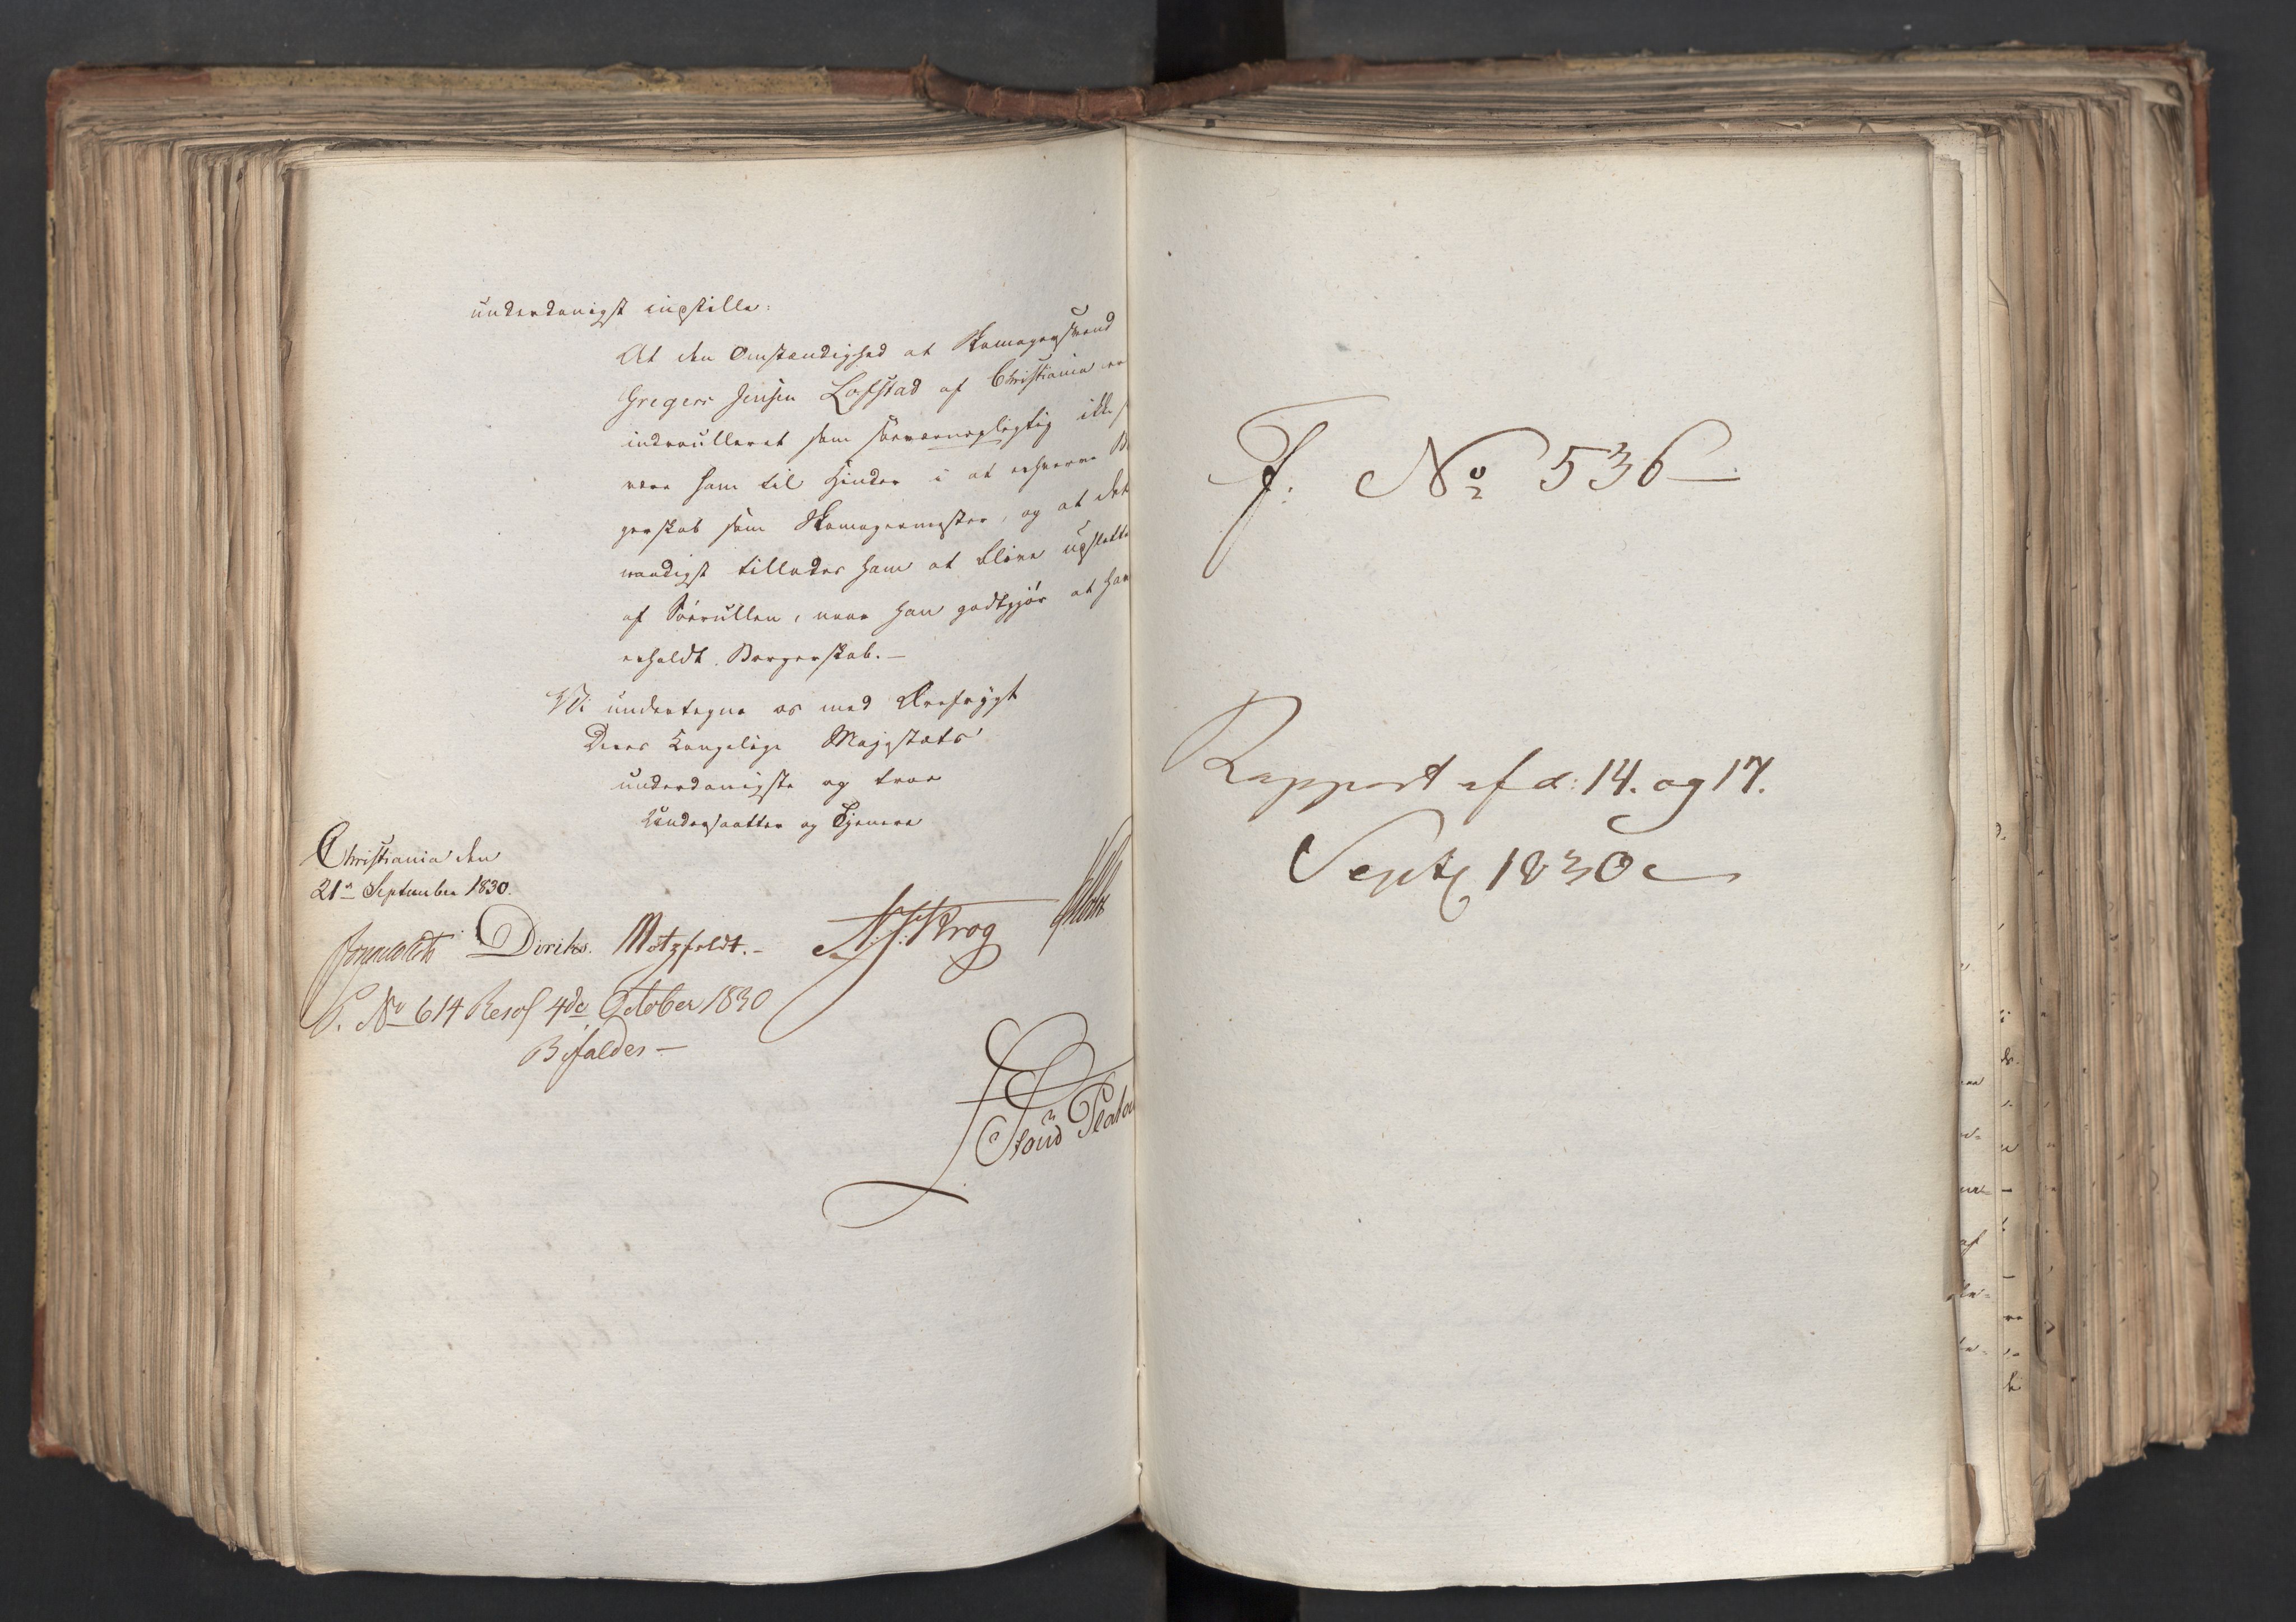 underdanigst indstille:
At den Omstændighed at Skomagersvend
Gregers Jensen Lofstad af Christiania er
indroulleret som søeværnepligtig ikke
være ham til Hinder i at erhverve B
gerskab som Skomagermester, og at det
naadigst tillades ham at blive udslette
af Søerullen, naar han godtgjør at han
erholdt Borgerskab. —
Vi undertegne os med Ærefrygt
Deres Kongelige Majestæts
underdanigste og troe
Undersaatter og Tjenere
Christiania den
21de September 1830.
Diriks. Motzfeldt. - Krog
P. No 614 Resol 4de October 1830
Bifaldes —
F. No 536 —
Rapport af d: 14. og 17.
Sept 1830